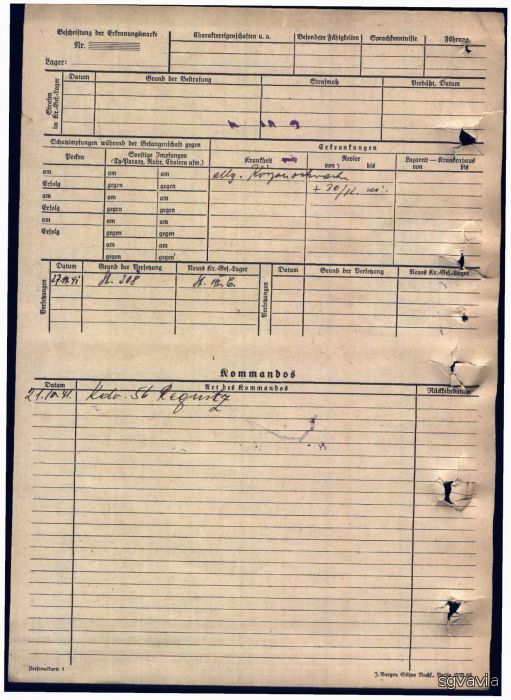 Beschriftung der Erkennungsmarke
Nr.
Lager:
Charaktereigenschaften u. a.
Besondere Fähigkeiten
Sprachkenntnisse
Führung
Strafen im Kr.-Gef.-Lager
Datum
Grund der Bestrafung
Strafmaß
Verbüßt, Datum
Schutzimpfungen während der Gefangenschaft gegen
Erkrankungen
Pocken
Sonstige Impfungen
(Ty-Paraty, Ruhr, Cholera usw.)
Krankheit
Revier
von bis
Lazarett — Krankenhaus
von bis
am am am
Erfolg gegen gegen
am am am
Erfolg gegen gegen
am am am
Erfolg gegen gegen
am am
gegen gegen
am am
gegen gegen
allg. Körperschwäche
+ 30/12.
Versetzungen
Datum
Grund der Versetzung
Neues Kr.-Gef.-Lager
Versetzungen
Datum
Grund der Versetzung
Neues Kr.-Gef.-Lager
St. 308
Kommandos
Datum
Art des Kommandos
Rückkehrdatum
21.10.41. Kdo. 56
Personalkarte 1
sgvavia